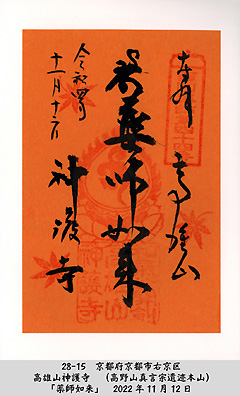 奉拝
高雄山
薬師如来
令和四年
十一月十二日
神護寺
28-15 京都府京都市右京区
高雄山神護寺 (高野山真言宗遺迹本山)
「薬師如来」 2022年11月12日